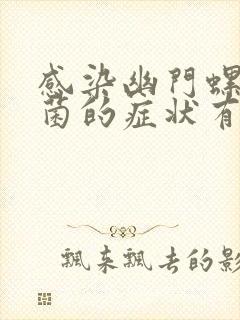 感染幽門螺
菌的症状有
飄来飄去的影